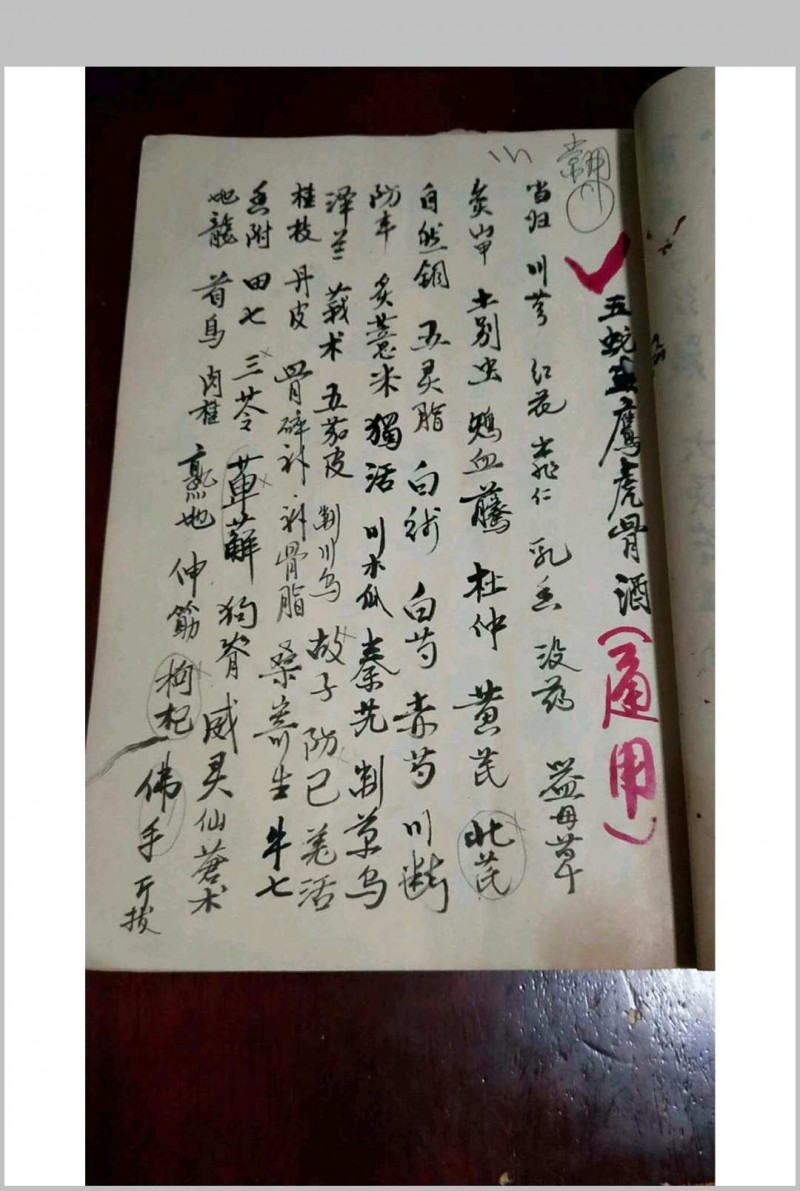 常用
五蛇鹰虎骨酒（通用）
当归 川芎 红花 桃仁 乳香 没药 益母草
炙山甲 土别虫 鸡血藤 杜仲 黄芪 北芪
自然铜 五灵脂 白术 白芍 赤芍 川断
防丰 炙薏米 獨活 川木瓜 秦艽 制草乌
泽兰 莪术 五茄皮 制川乌 故子 防已 羌活
桂枝 丹皮 骨碎补 补骨脂 桑寄生 牛七
香附 田七 三苓 萆薢 狗脊 威灵仙 苍术
地龍 首乌 肉桂 熟地 伸筋 枸杞 佛手